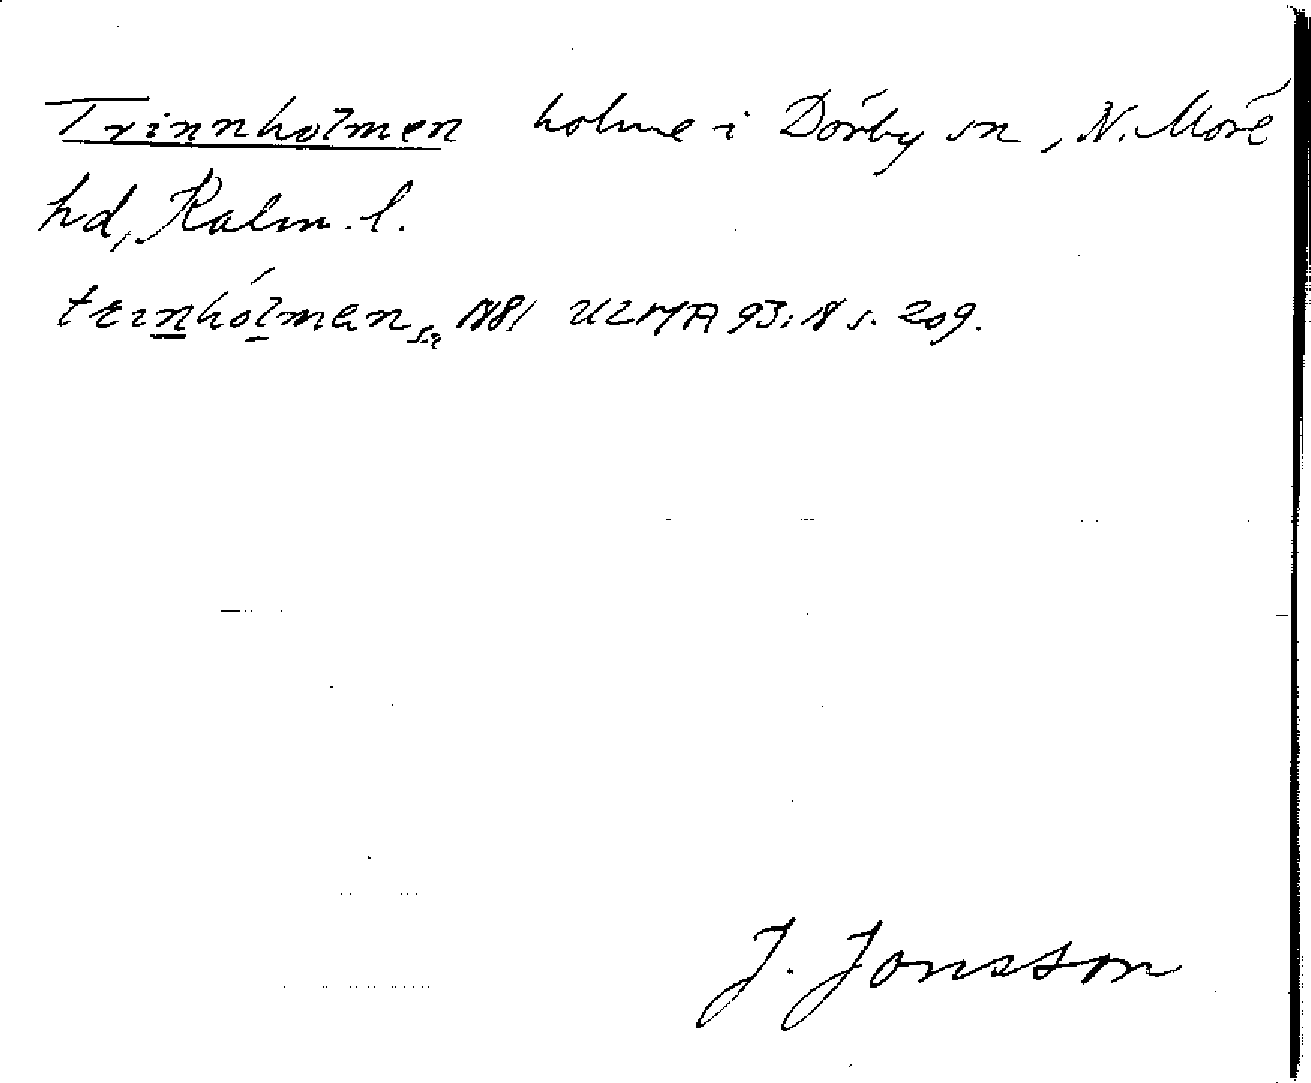 Trinnholmen holme i Dörby sn, N. Möre
hd, Kalm. l.
1881 ULMA 93:18 s. 209.
J. Jonsson